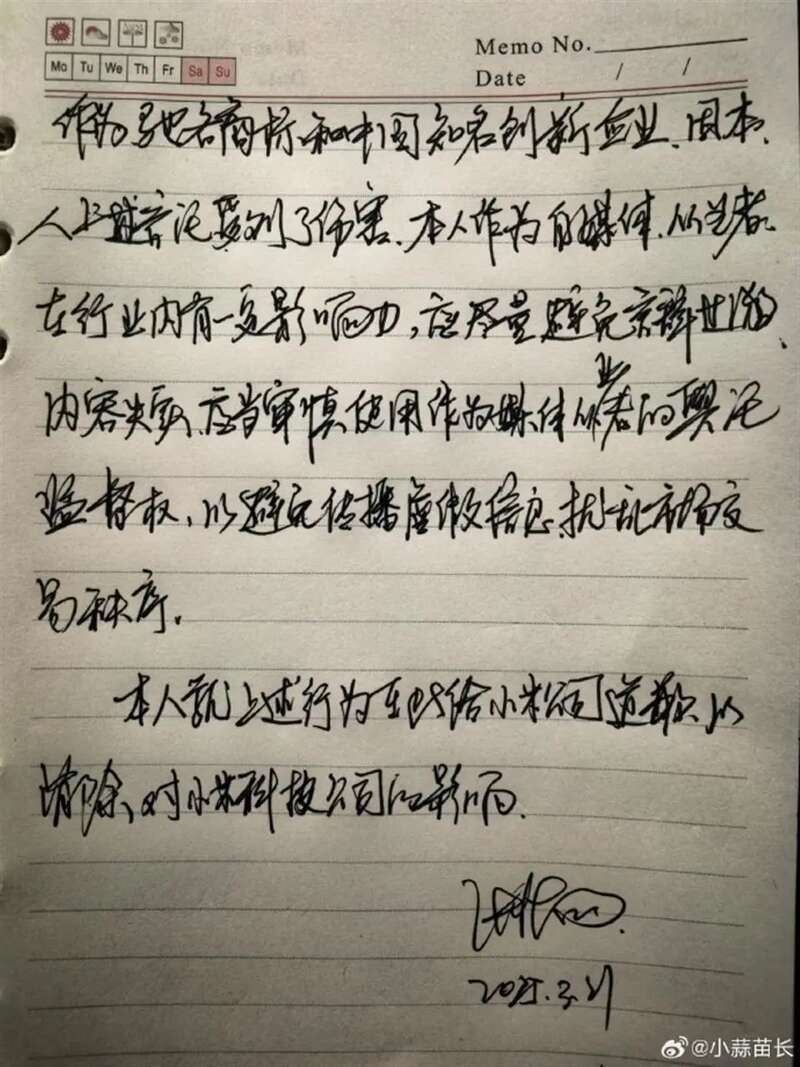 Memo No.
Mo Tu We Th Fr Sa Su
Date / /
作为驰名商标和中国知名创新企业、因本
人上述言论受到了伤害、本人作为自媒体、从业者、
在行业内有一定影响力，应尽量避免
内容失实、应当审慎使用作为媒体从业者的舆论
监督权、以避免传播虚假信息、扰乱市场交
易秩序。
本人就上述行为在此给小米公司道歉、以
消除、对小米科技公司的影响.
2025.3.21
@小蒜苗长